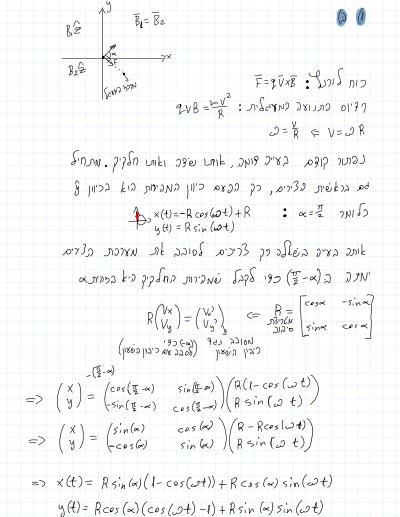 y
B₁ẑ
B̄₁ = B̄₂
α
x
B₂ẑ
F̄
כוח לורנץ: F̄ = qV̄×B̄
רדיוס התנועה המעגלית: qVB = mV²/R
ω = V/R ⇐ V = ωR
נפתור קודם בעיה דומה, אותו שדה ואותו חלקיק. מתחיל
גם בראשית הצירים, רק הפעם כיוון המהירות הוא בכיוון ŷ
כלומר α = π/2 : x(t) = -R cos(ωt) + R
y(t) = R sin(ωt)
אותה בעיה בשאלה רק צריכים לסובב את מערכת הצירים
ימינה ב (π/2-α) כדי לקבל שמהירות החלקיק היא בזווית α
R (Vx Vy) = (Vx' Vy') ⇐ R = [cosα -sinα
sinα cosα]
מטריצת סיבוב
מסובב נגד כיוון השעון
(-α) כדי לסובב עם כיוון השעון
-(π/2-α)
=> (x y) = (cos(π/2-α) sin(π/2-α)
-sin(π/2-α) cos(π/2-α)) (R(1-cos(ωt))
R sin(ωt))
=> (x y) = (sin(α) cos(α)
-cos(α) sin(α)) (R-Rcos(ωt)
R sin(ωt))
=> x(t) = R sin(α)(1-cos(ωt)) + R cos(α) sin(ωt)
y(t) = R cos(α)(cos(ωt)-1) + R sin(α) sin(ωt)